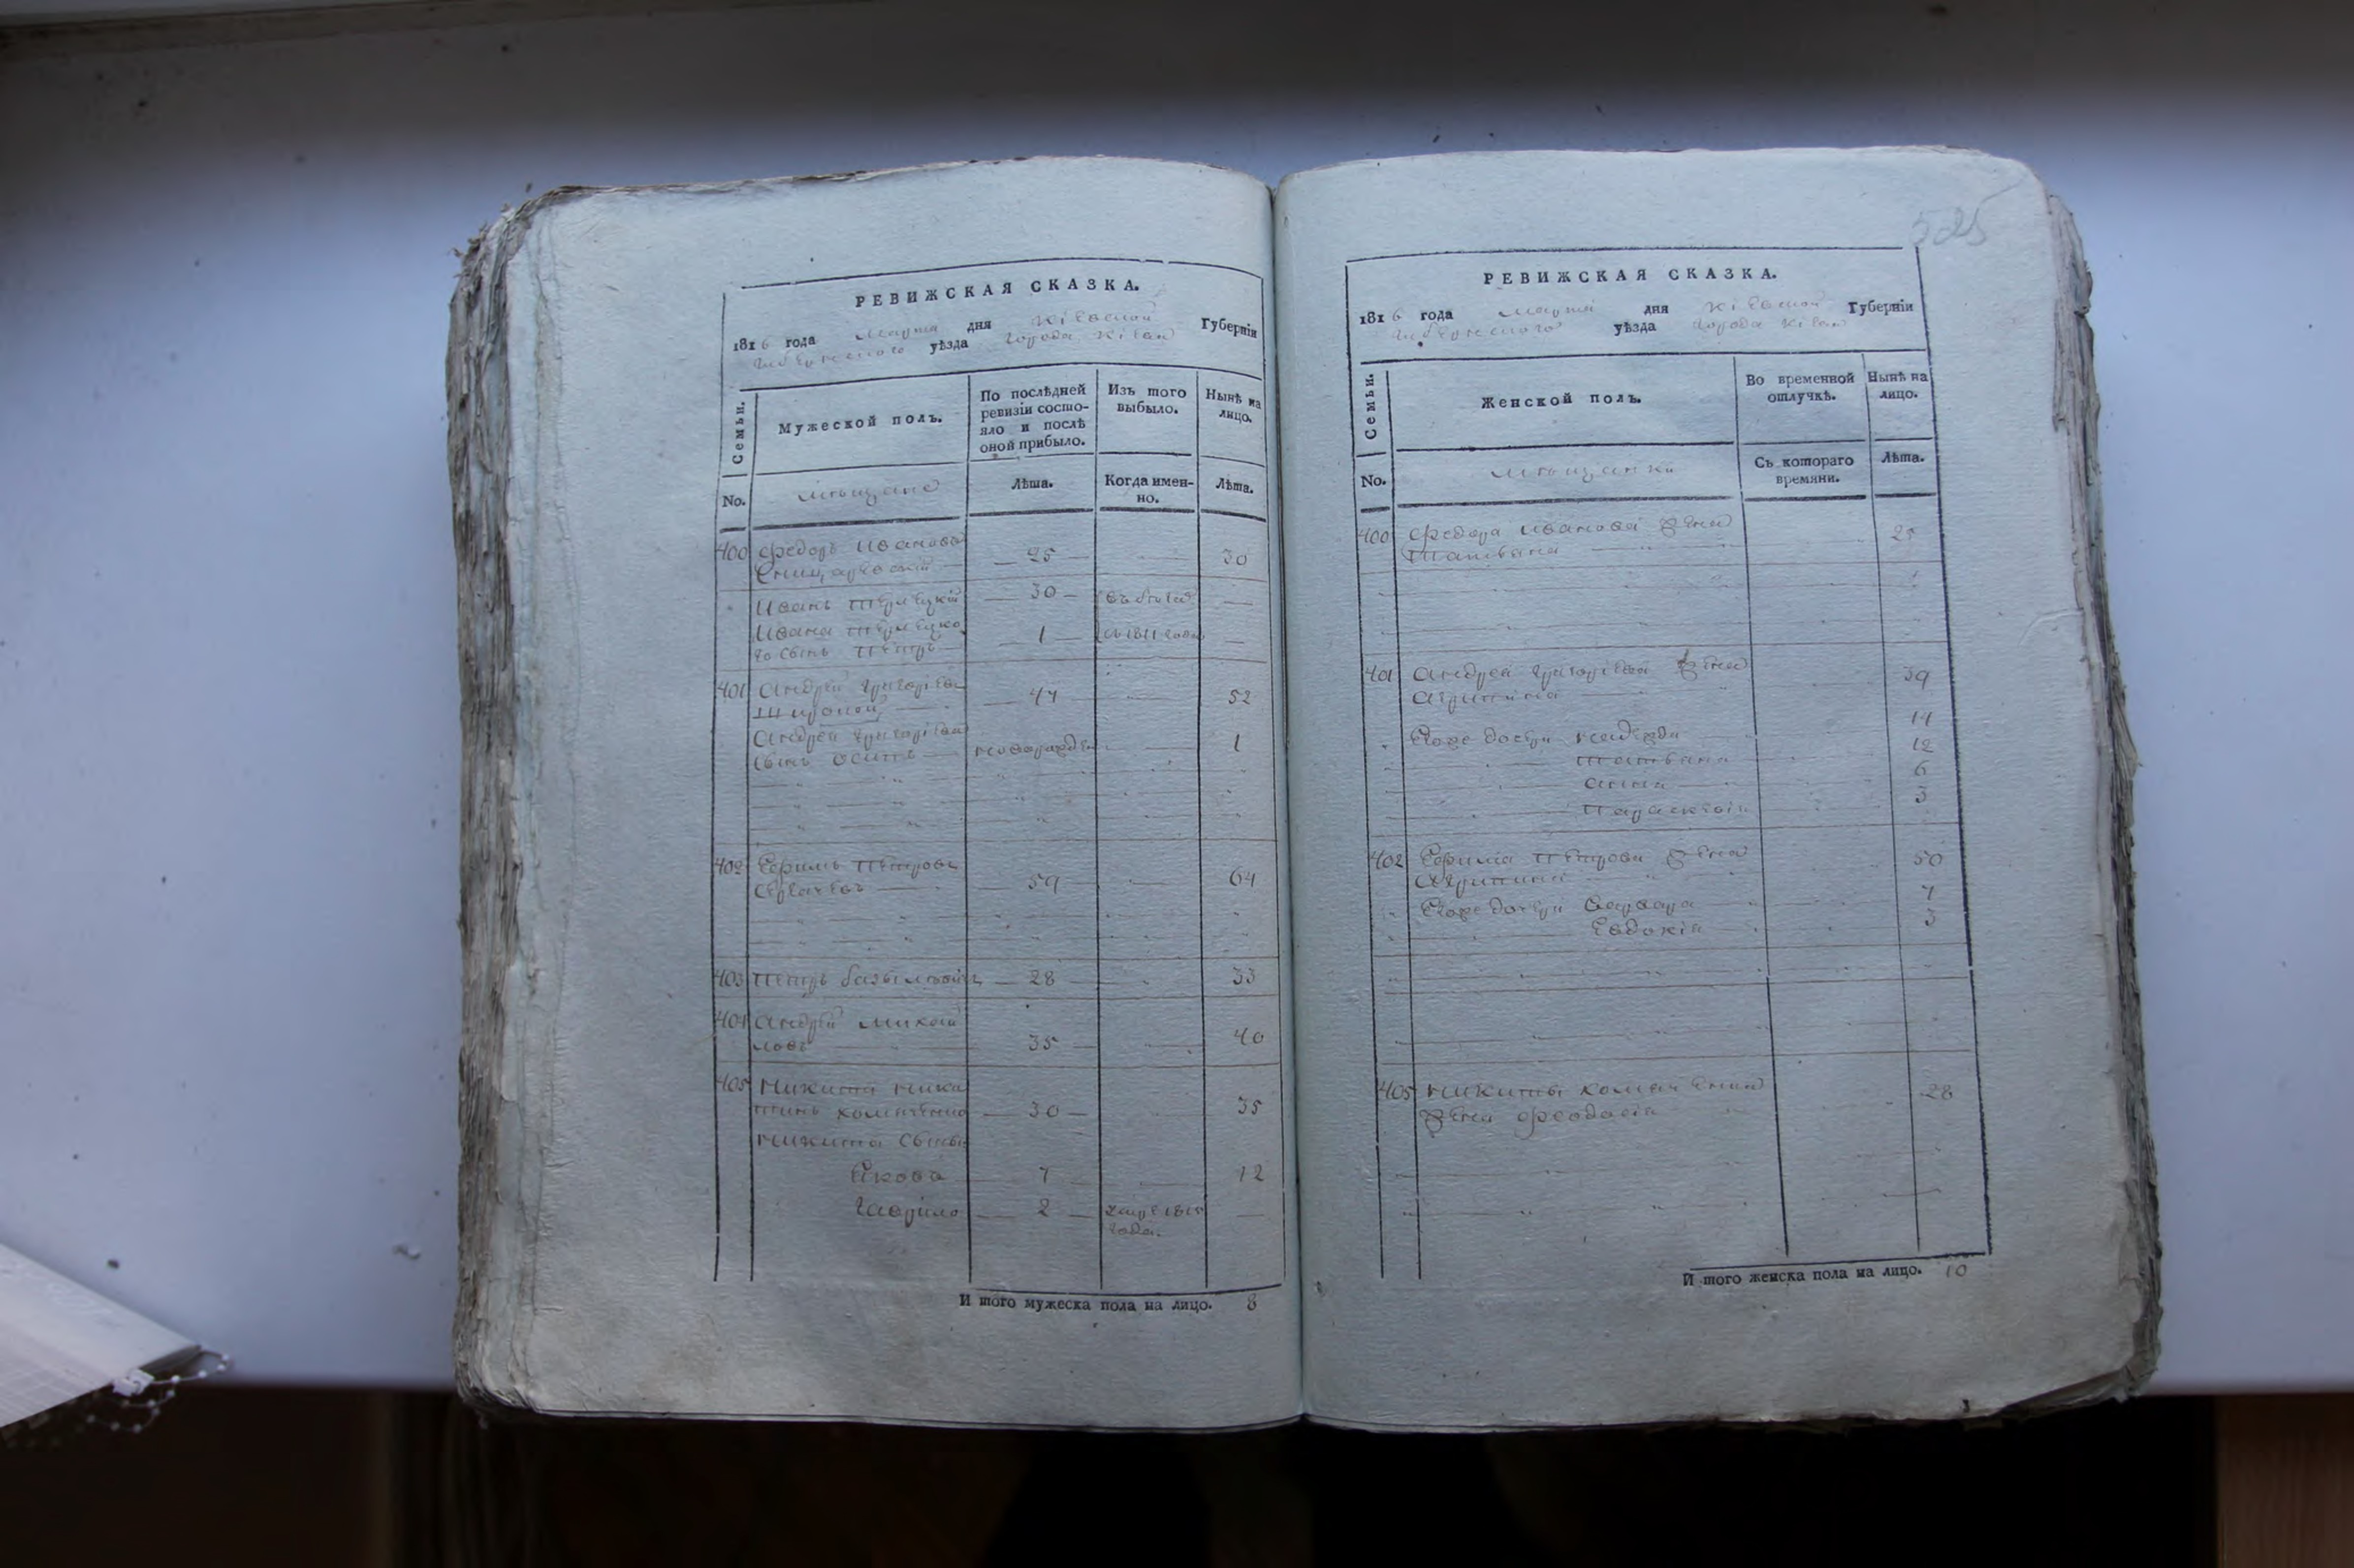 РЕВИЖСКАЯ СКАЗКА.
1816 года марта дня Кіевской Губерніи
уѣзда города Кіева
Семьи.
Мужеской полъ.
По послѣдней ревизіи состо-
яло и послѣ
оной прибыло.
Изъ того
выбыло.
Нынѣ на
лицо.
No.
мѣщане
Лѣта.
Когда имен-
но.
Лѣта.
400 Федоръ Ивановъ
25 30
Иванъ Терлецкій 30
Ивана Терлецко
го сынъ Петръ 1 съ 1811 года
401 Андрей Григорьевъ
47 52
Андрея Григорьева
сынъ Осипъ новорожден 1
402 Ефимъ Петровъ
59 64
403 Петръ 28 33
404 Андрей Михай
ловъ 35 40
405 Никита Ники
тинъ 30 35
Никиты сыны
Яковъ 7 12
Гаврило 2 умре 1815
года.
И того мужеска пола на лицо. 8
525
РЕВИЖСКАЯ СКАЗКА.
1816 года марта дня Кіевской Губерніи
уѣзда города Кіева
Семьи.
Женской полъ.
Во временной
отлучкѣ.
Нынѣ на
лицо.
No.
мѣщанки
Съ котораго
времяни.
Лѣта.
400 Федора Иванова жена
Татьяна 25
401 Андрея Григорьева жена
Агрипина 39
Его же дочери Надежда 14
Татьяна 12
Анна 6
Параскевія 3
402 Ефима Петрова жена
Агрипина 50
Его же дочери Варвара 7
Евдокія 3
405 Никиты
жена Феодосія 28
И того женска пола на лицо. 10